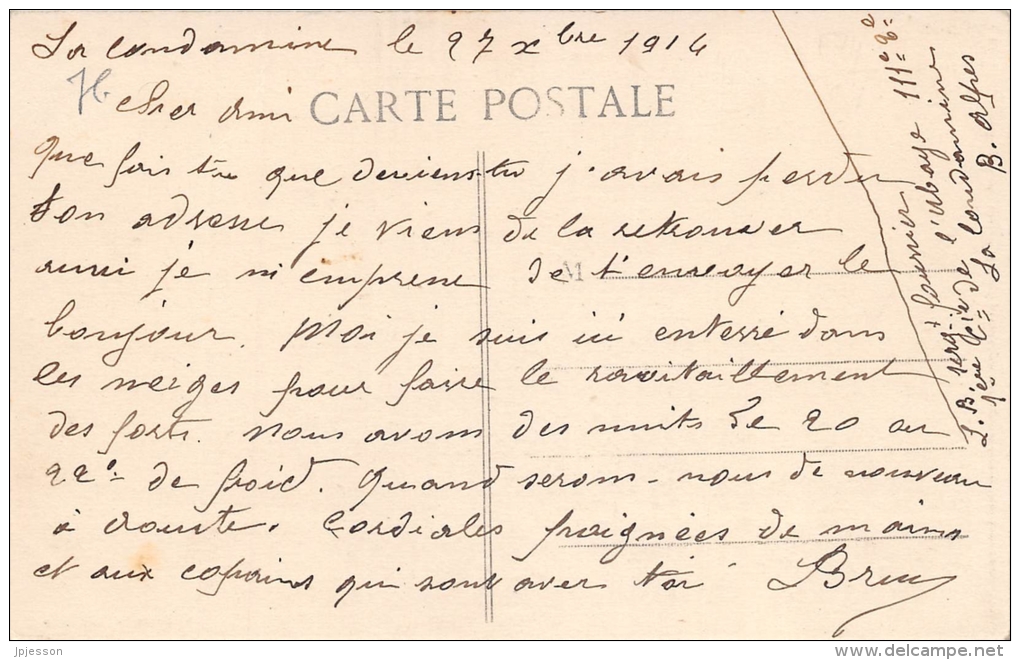 La condamine le 27 xbre 1914
76
Cher ami
CARTE POSTALE
que fais tu que deviens-tu j'avais perdu
ton adresse je viens de la retrouver
aussi je m'emprene de t'envoyer le
bonjour. Moi je suis ici enterré dans
les neiges pour faire le ravitaillement
des forts. Nous avons des nuits de 20 au
22° de froid. Quand serons-nous de nouveau
à croute. Cordiales poignées de mains
et aux copains qui sont avec toi LBrun
L. B. sergt fourrier 111e
1ère Cie de l'Ubaye
La Condamine
B. Alpes
jpjesson